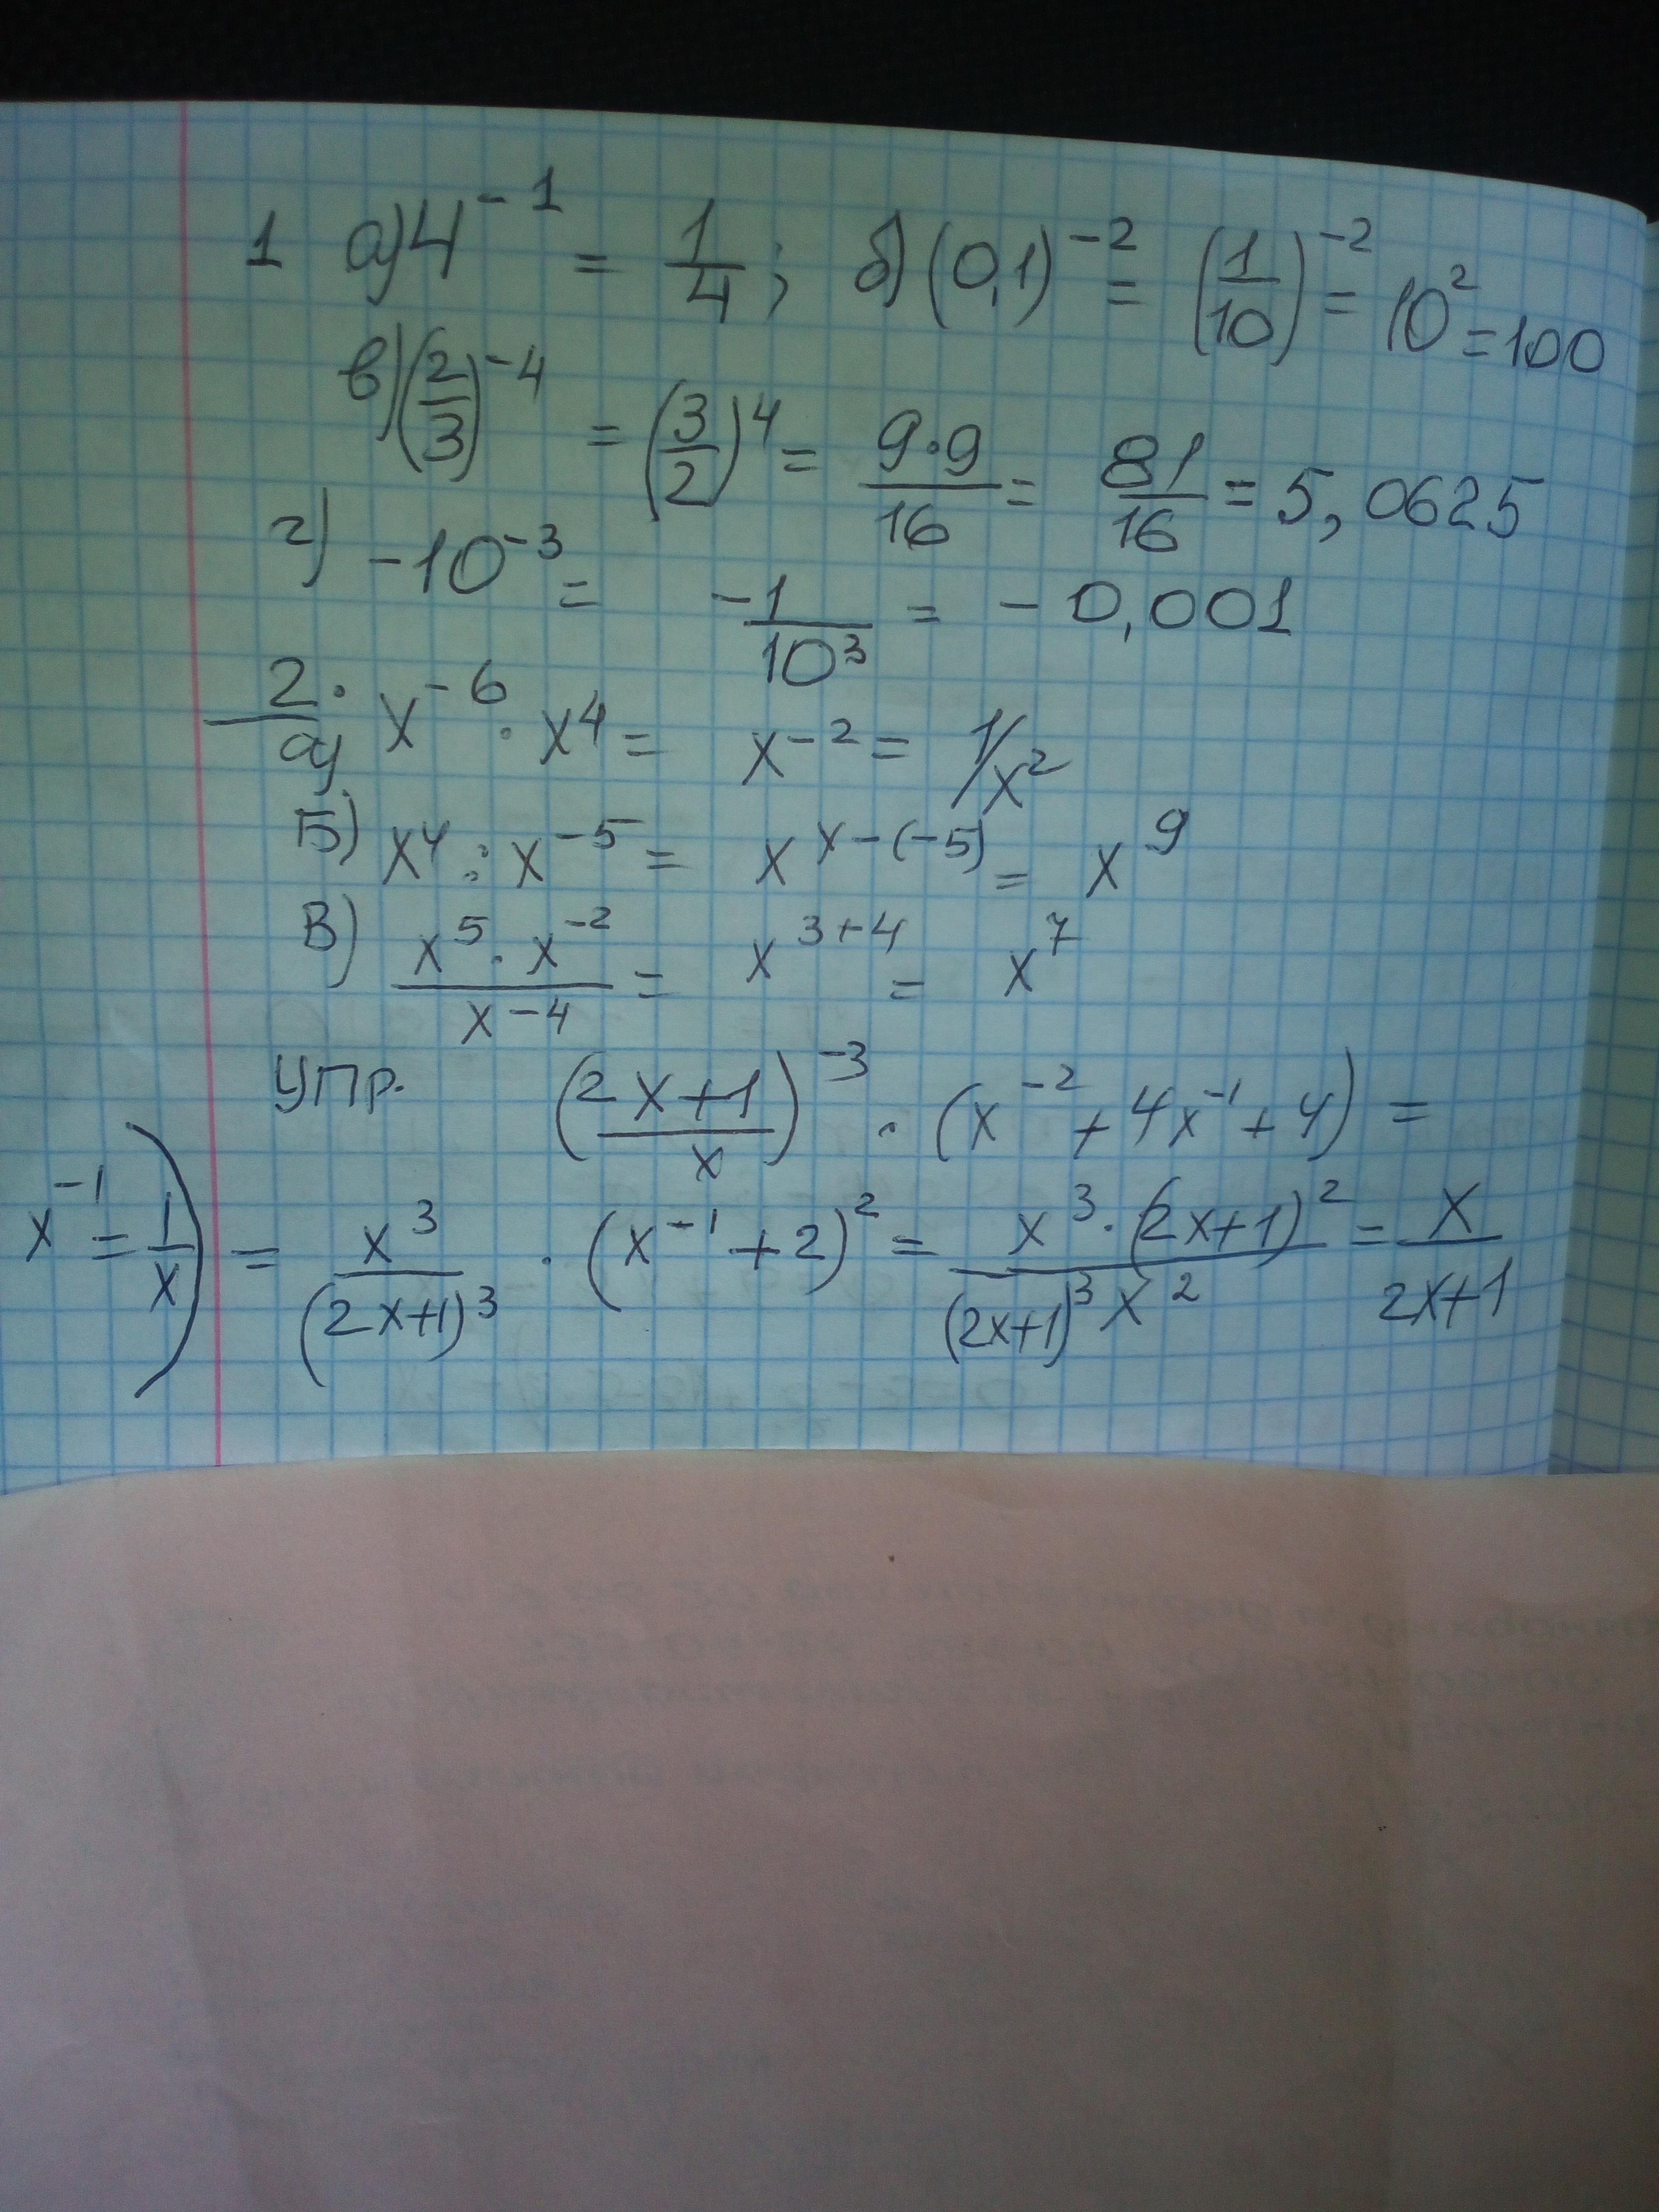 1 а) 4^-1 = 1/4; б) (0,1)^-2 = (1/10)^-2 = 10^2 = 100
в) (2/3)^-4 = (3/2)^4 = 9·9/16 = 81/16 = 5,0625
г) -10^-3 = -1/10^3 = -0,001
2.
а) x^-6 · x^4 = x^-2 = 1/x^2
Б) x^4 : x^-5 = x^x-(-5) = x^9
В) x^5 · x^-2 / x^-4 = x^3+4 = x^7
Упр. (2x+1/x)^-3 · (x^-2 + 4x^-1 + 4) =
x^-1 = 1/x) = x^3/(2x+1)^3 · (x^-1 + 2)^2 = x^3 · (2x+1)^2/(2x+1)^3 x^2 = x/2x+1